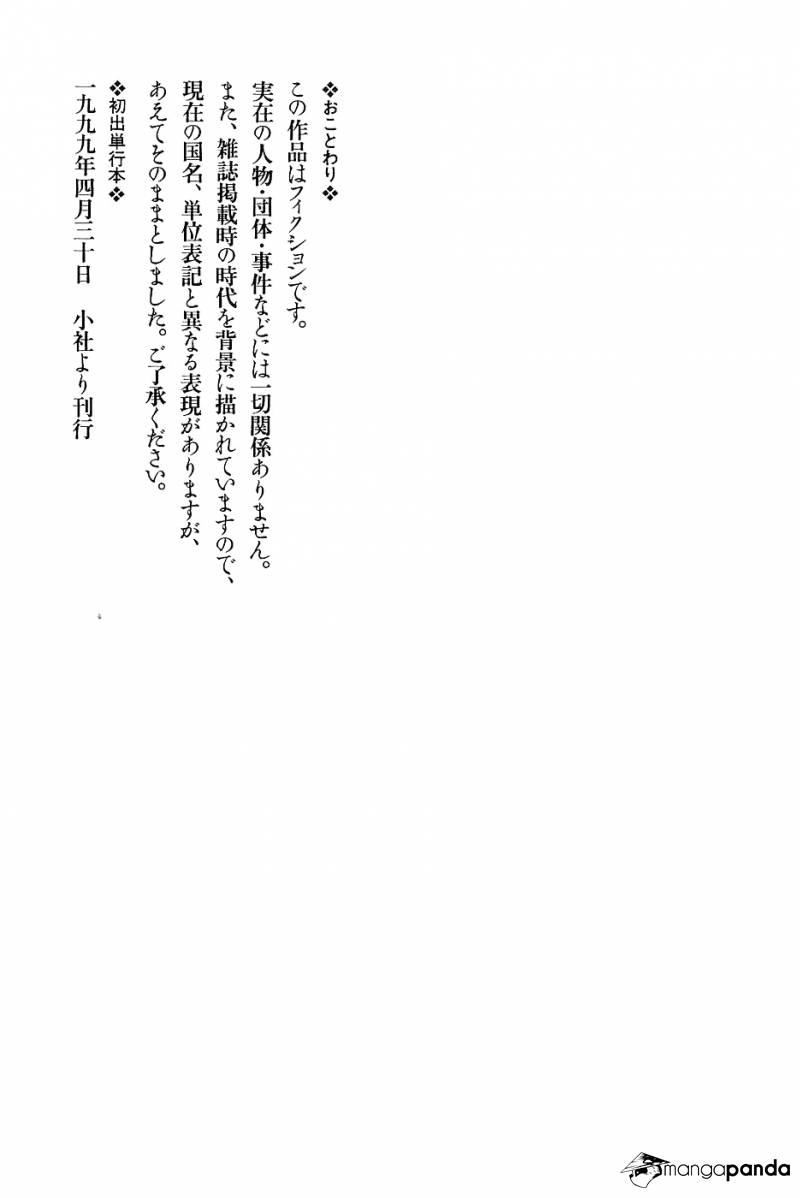 ❖おことわり❖
この作品はフィクションです。
実在の人物・団体・事件などには一切関係ありません。
また、雑誌掲載時の時代を背景に描かれていますので、
現在の国名、単位表記と異なる表現がありますが、
あえてそのままとしました。ご了承ください。
❖初出単行本❖
一九九九年四月三十日　小社より刊行
mangapanda